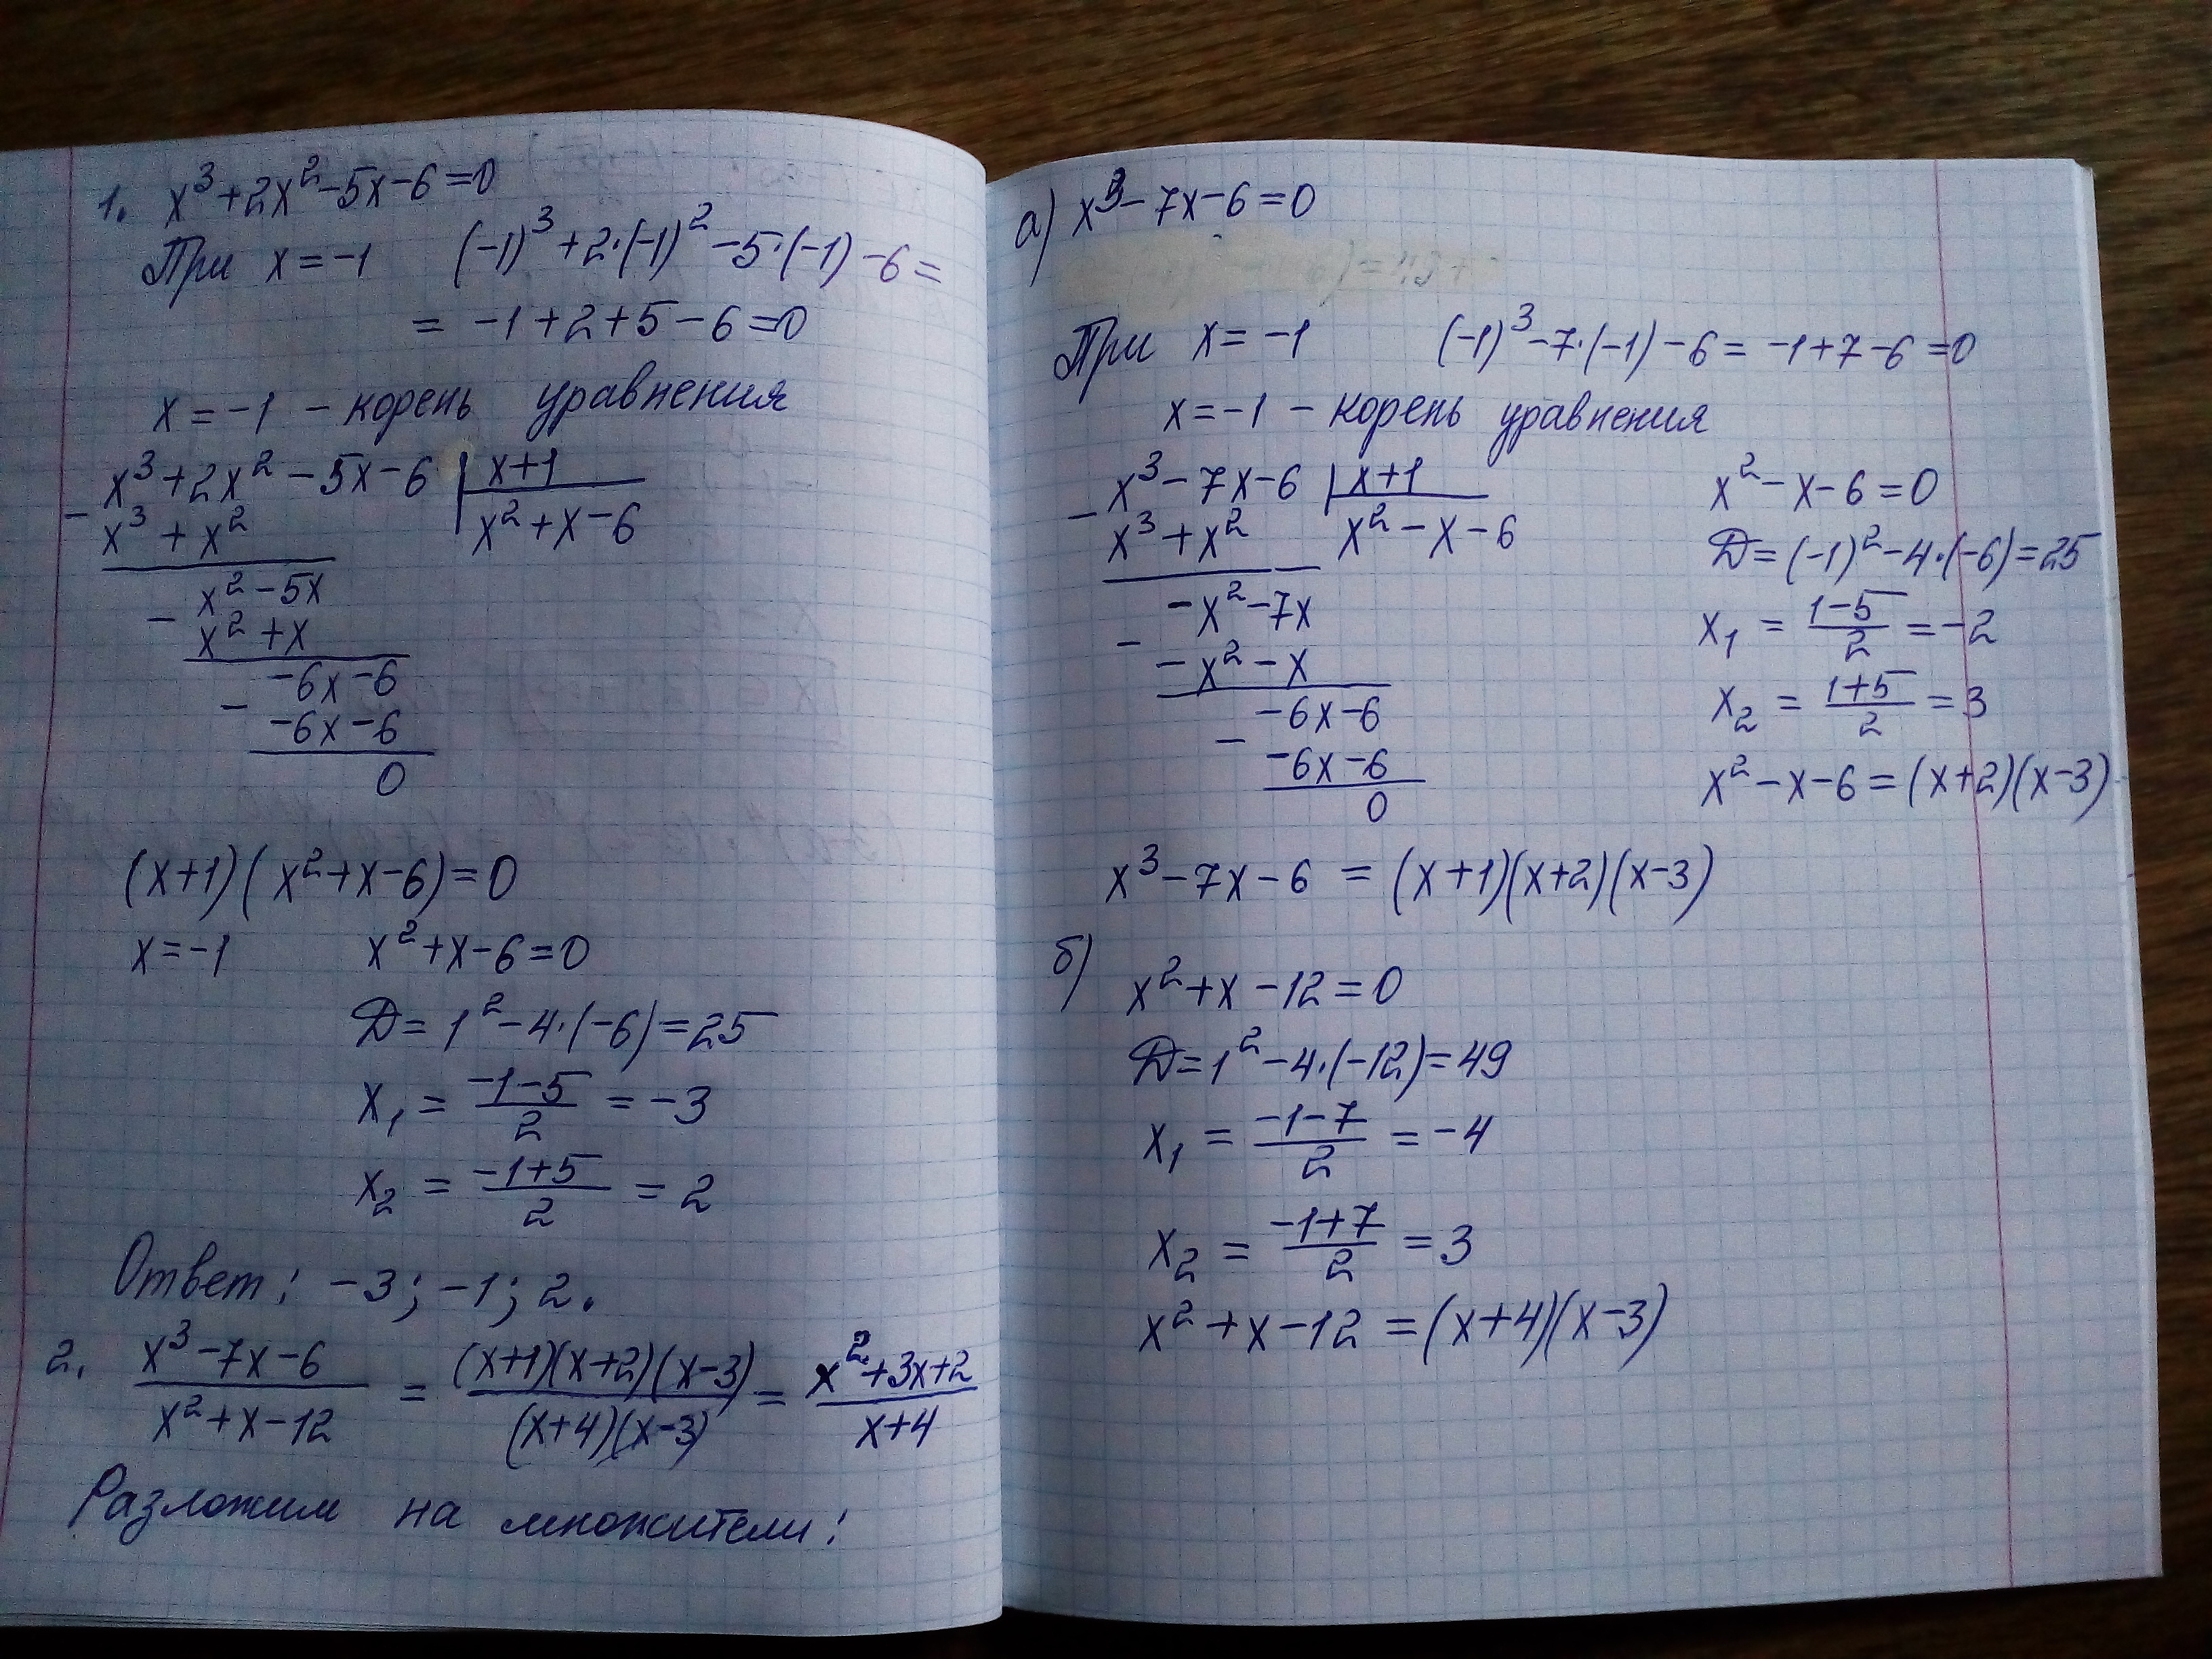 1. x³+2x²-5x-6=0
При x=-1 (-1)³+2·(-1)²-5·(-1)-6=
= -1+2+5-6=0
x=-1 - корень уравнения
x³+2x²-5x-6 | x+1
- x³+x² | x²+x-6
x²-5x
- x²+x
-6x-6
- -6x-6
0
(x+1)(x²+x-6)=0
x=-1 x²+x-6=0
D=1²-4·(-6)=25
x₁ = (-1-5)/2 = -3
x₂ = (-1+5)/2 = 2
Ответ: -3; -1; 2.
2. (x³-7x-6)/(x²+x-12) = ((x+1)(x+2)(x-3))/((x+4)(x-3)) = (x²+3x+2)/(x+4)
Разложим на множители:
а) x³-7x-6=0
При x=-1 (-1)³-7·(-1)-6= -1+7-6=0
x=-1 - корень уравнения
x³-7x-6 | x+1
- x³+x² | x²-x-6
-x²-7x
- -x²-x
-6x-6
- -6x-6
0
x²-x-6=0
D=(-1)²-4·(-6)=25
x₁ = (1-5)/2 = -2
x₂ = (1+5)/2 = 3
x²-x-6=(x+2)(x-3)
x³-7x-6 = (x+1)(x+2)(x-3)
б) x²+x-12=0
D=1²-4·(-12)=49
x₁ = (-1-7)/2 = -4
x₂ = (-1+7)/2 = 3
x²+x-12=(x+4)(x-3)